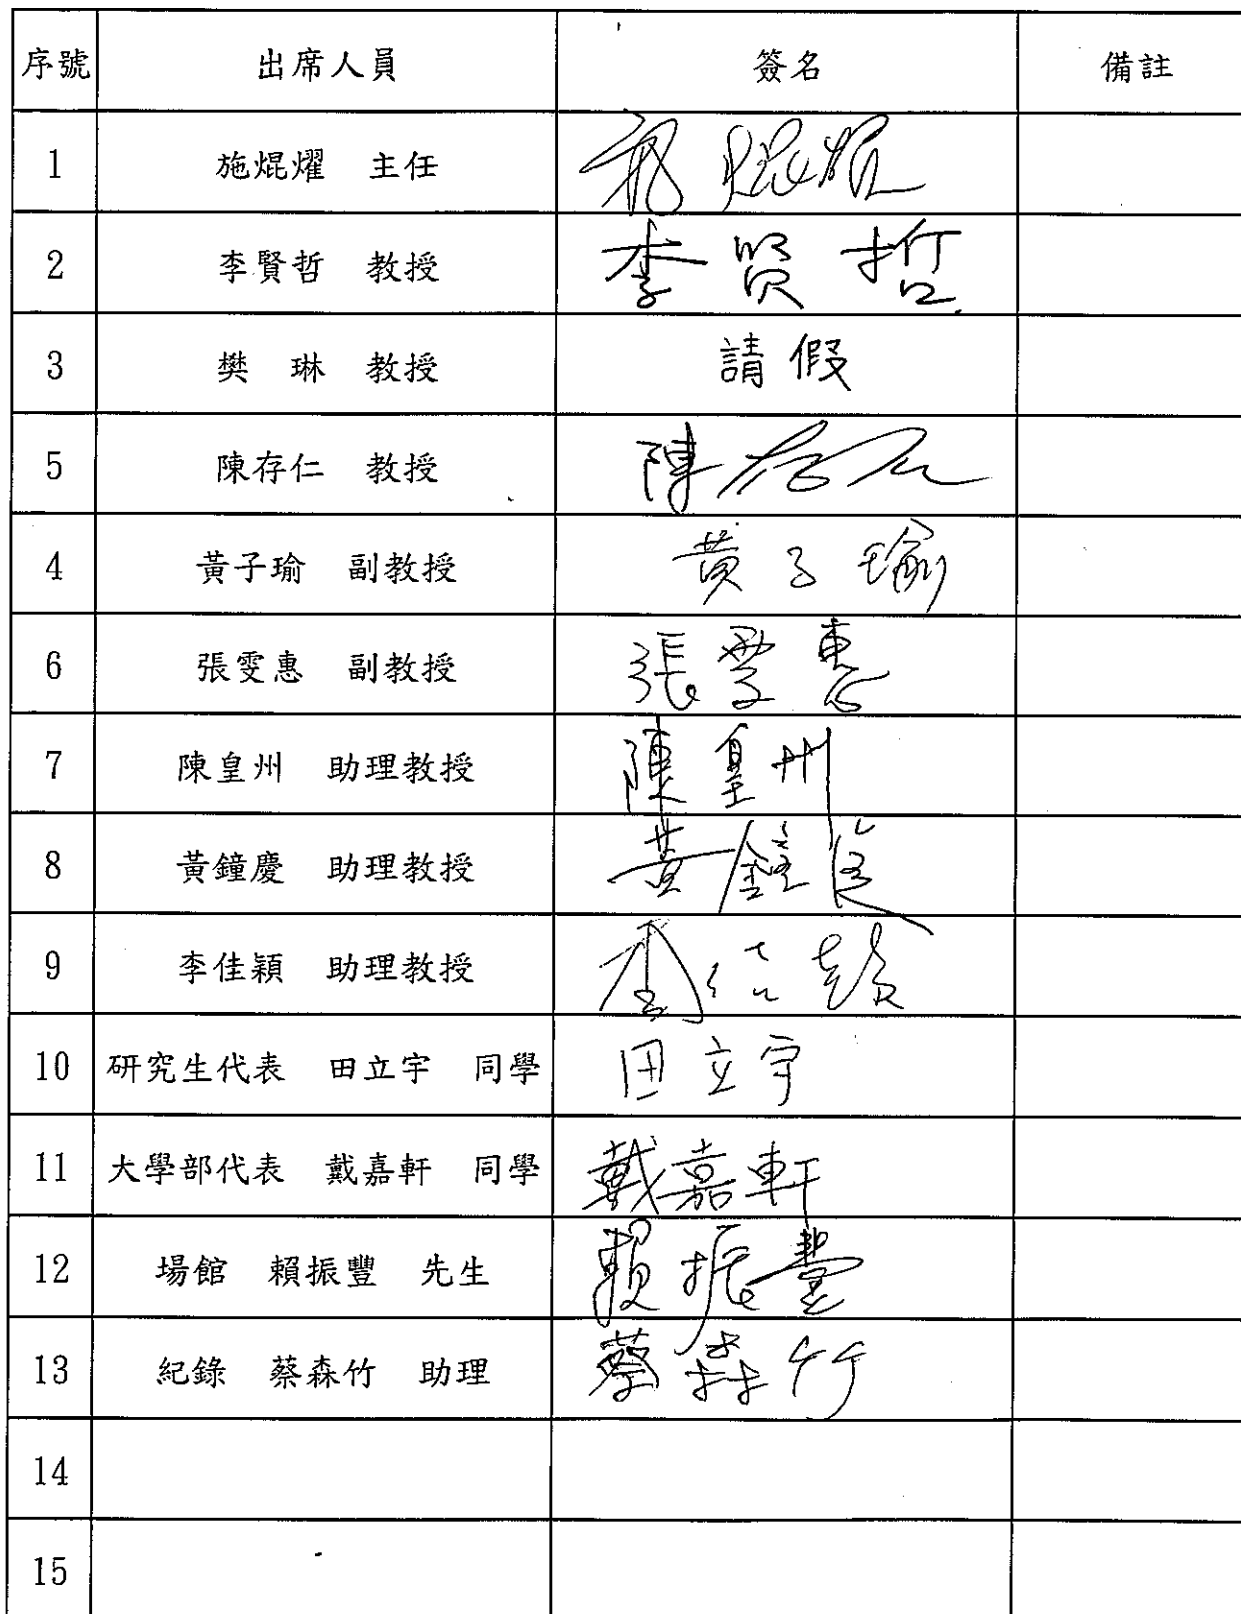 序號 出席人員 簽名 備註
1 施焜燿 主任 施焜燿
2 李賢哲 教授 李賢哲
3 樊 琳 教授 請假
5 陳存仁 教授 陳存仁
4 黃子瑜 副教授 黃子瑜
6 張雯惠 副教授 張雯惠
7 陳皇州 助理教授 陳皇州
8 黃鐘慶 助理教授 黃鐘慶
9 李佳穎 助理教授 李佳穎
10 研究生代表 田立宇 同學 田立宇
11 大學部代表 戴嘉軒 同學 戴嘉軒
12 場館 賴振豐 先生 賴振豐
13 紀錄 蔡森竹 助理 蔡森竹
14
15